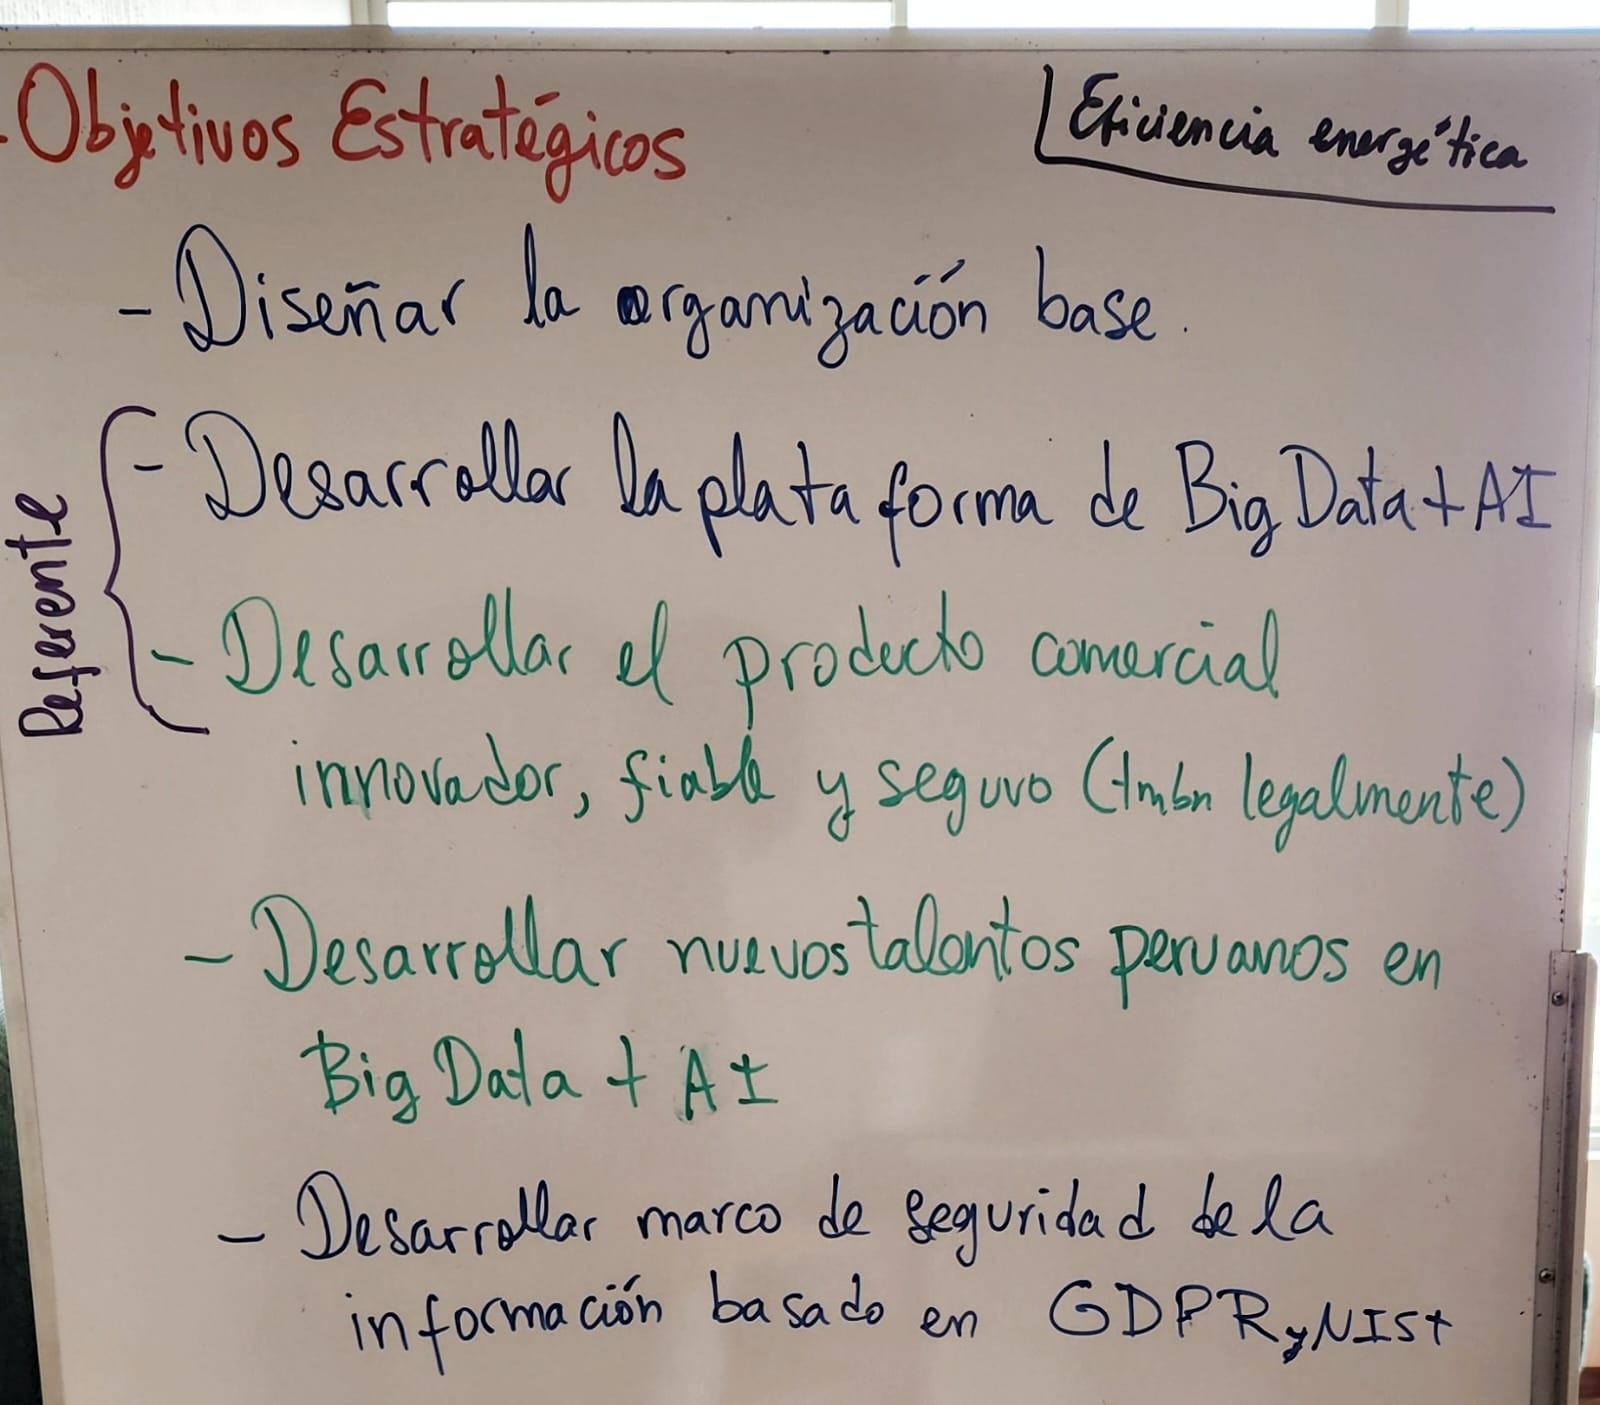 Objetivos Estratégicos
Eficiencia energética
- Diseñar la organización base.
Referente
- Desarrollar la plataforma de Big Data + AI
- Desarrollar el producto comercial
innovador, fiable y seguro (tmbn legalmente)
- Desarrollar nuevos talentos peruanos en
Big Data + AI
- Desarrollar marco de seguridad de la
información basado en GDPR y NIST